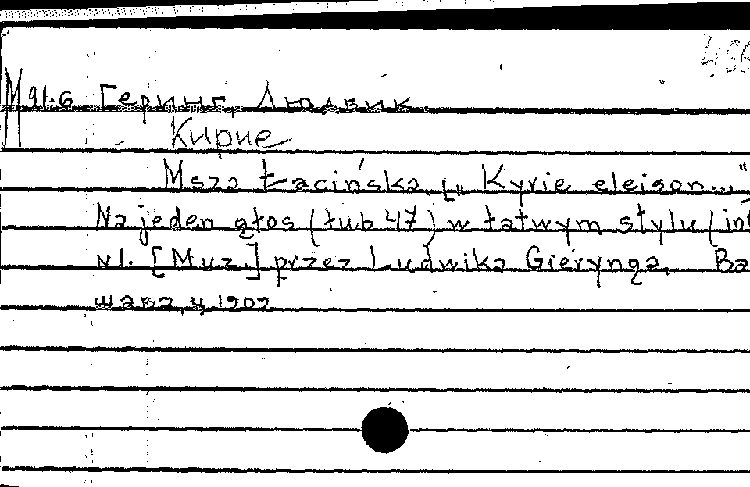 456
М91.6 Геринг, Людвик
Кирие
Msza Łacińska („Kyrie eleison..."
Na jeden głos (łub 47) w łatwym stylu (int
wł. [Muz.] przez Ludwika Gierynga, Ba
шава, ч, 1902